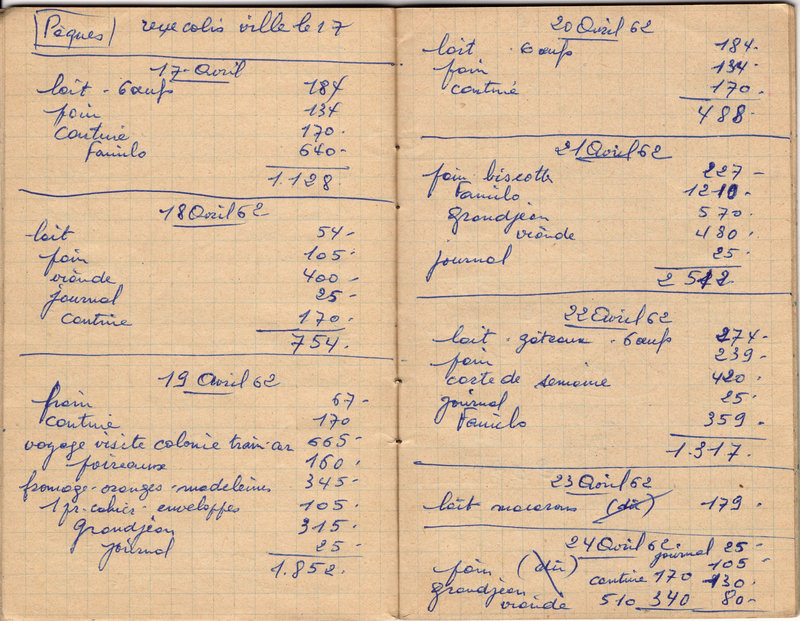 Pâques reçu colis ville le 17
17 Avril
lait - 6 œufs 184
pain 134
cantine 170 -
Familo 640 -
1.128.
18 Avril 62
lait 54 -
pain 105 -
viande 400 -
journal 25 -
cantine 170 -
754.
19 Avril 62
pain 67 -
cantine 170
voyage visite colonie train-car 665 -
poireaux 160 -
fromage - oranges - madeleines 345 -
1 pr. cahier - enveloppes 105 -
Grandjean 315 -
journal 25 -
1.852.
20 Avril 62
lait - 6 œufs 184 -
pain 134 -
cantine 170 -
488 -
21 Avril 62
pain biscotte 227 -
Familo 1210 -
Grandjean 570 -
viande 480 -
journal 25 -
2 512 -
22 Avril 62
lait - gâteaux - 6 œufs 274 -
pain 239 -
carte de semaine 420 -
journal 25 -
Familo 359 -
1.317.
23 Avril 62
lait macarons (dû) 179 -
24 Avril 62 journal 25 -
pain (dû) 105 -
cantine 170 130 -
grandjean
viande 510 340 80 -